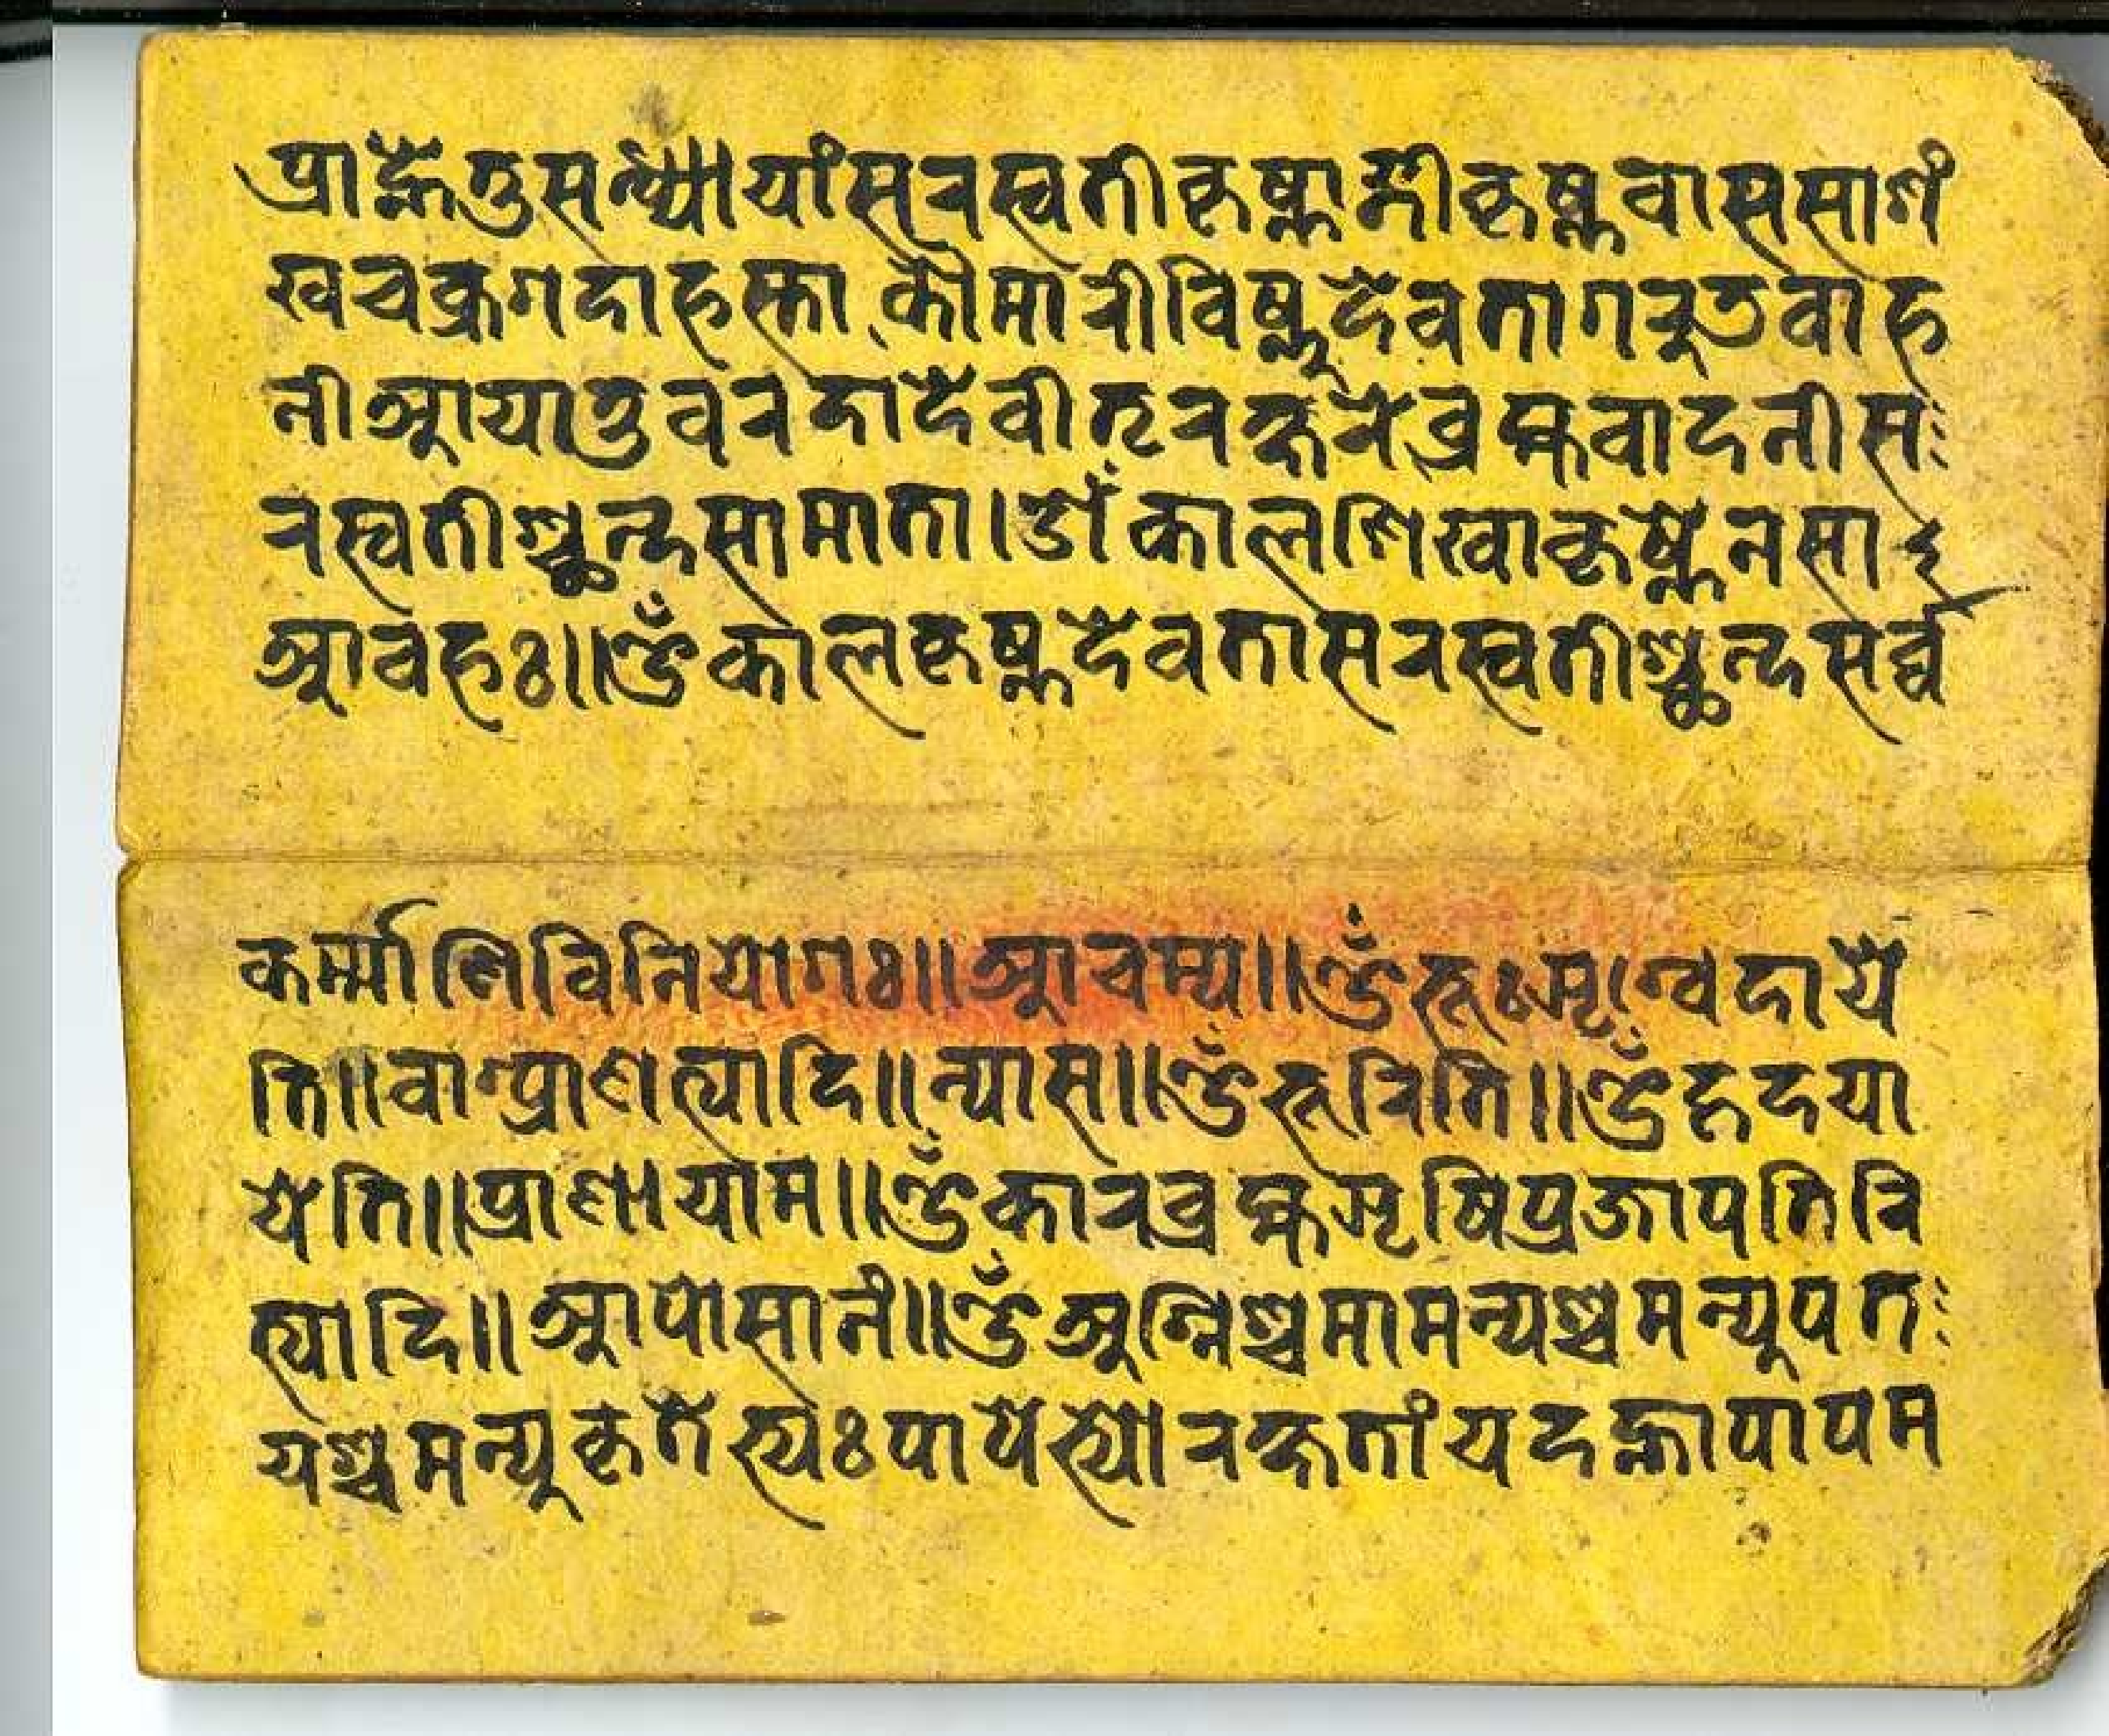 प्राह्णेतुसन्ध्यायांसरस्वतीकृष्णाङ्गीकृष्णवाससाशं
खचक्रगदाहस्ता कौमारीविष्णुदेवतागरुडवाह
नीआयातुवरदादेवीतृरक्षरेब्रह्मवादनीस
रस्वतीश्छन्दसामाता।ओंकालशिखाकृष्णेनसा
आवहः॥ॐकालकृष्णदेवतासरस्वतीश्छन्दसर्व्व
कर्म्माणिविनियोगः॥आचम्य॥ॐभूःऋग्वेदाये
ति॥वाग्प्राणत्यादि॥न्यास॥ॐभूरिति॥ॐहृदया
येति॥प्राणायाम॥ॐकारब्रह्मऋषिप्रजापतिरि
त्यादि॥आपोसानं॥ॐअग्निश्चमामन्यश्चमन्यूपत
यश्चमन्यूकृतेभ्यःपापेभ्योरक्षतांयदह्नापापम